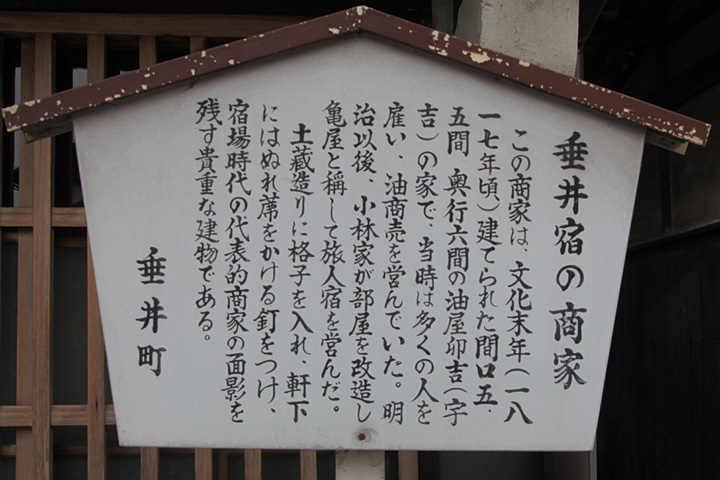 垂井宿の商家
この商家は、文化末年(一八
一七年頃)建てられた間口五、
五間 奥行六間の油屋卯吉(宇
吉)の家で、当時は多くの人を
雇い、油商売を営んでいた。明
治以後、小林家が部屋を改造し
亀屋と稱して旅人宿を営んだ。
土蔵造りに格子を入れ、軒下
にはぬれ蓆をかける釘をつけ、
宿場時代の代表的商家の面影を
残す貴重な建物である。
垂井町